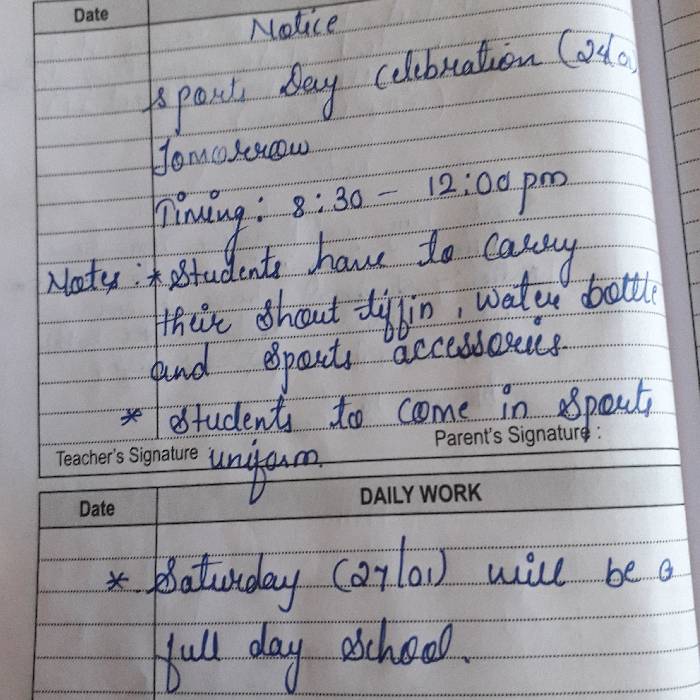 Date
Notice
Sports Day Celebration (24/01
Tomorrow
Timing: 8:30 - 12:00 pm
Notes: * Students have to carry
their short tiffin, water bottle
and sports accessories.
* Students to come in Sports
Teacher's Signature uniform. Parent's Signature:
Date DAILY WORK
* Saturday (27/01) will be a
full day school.